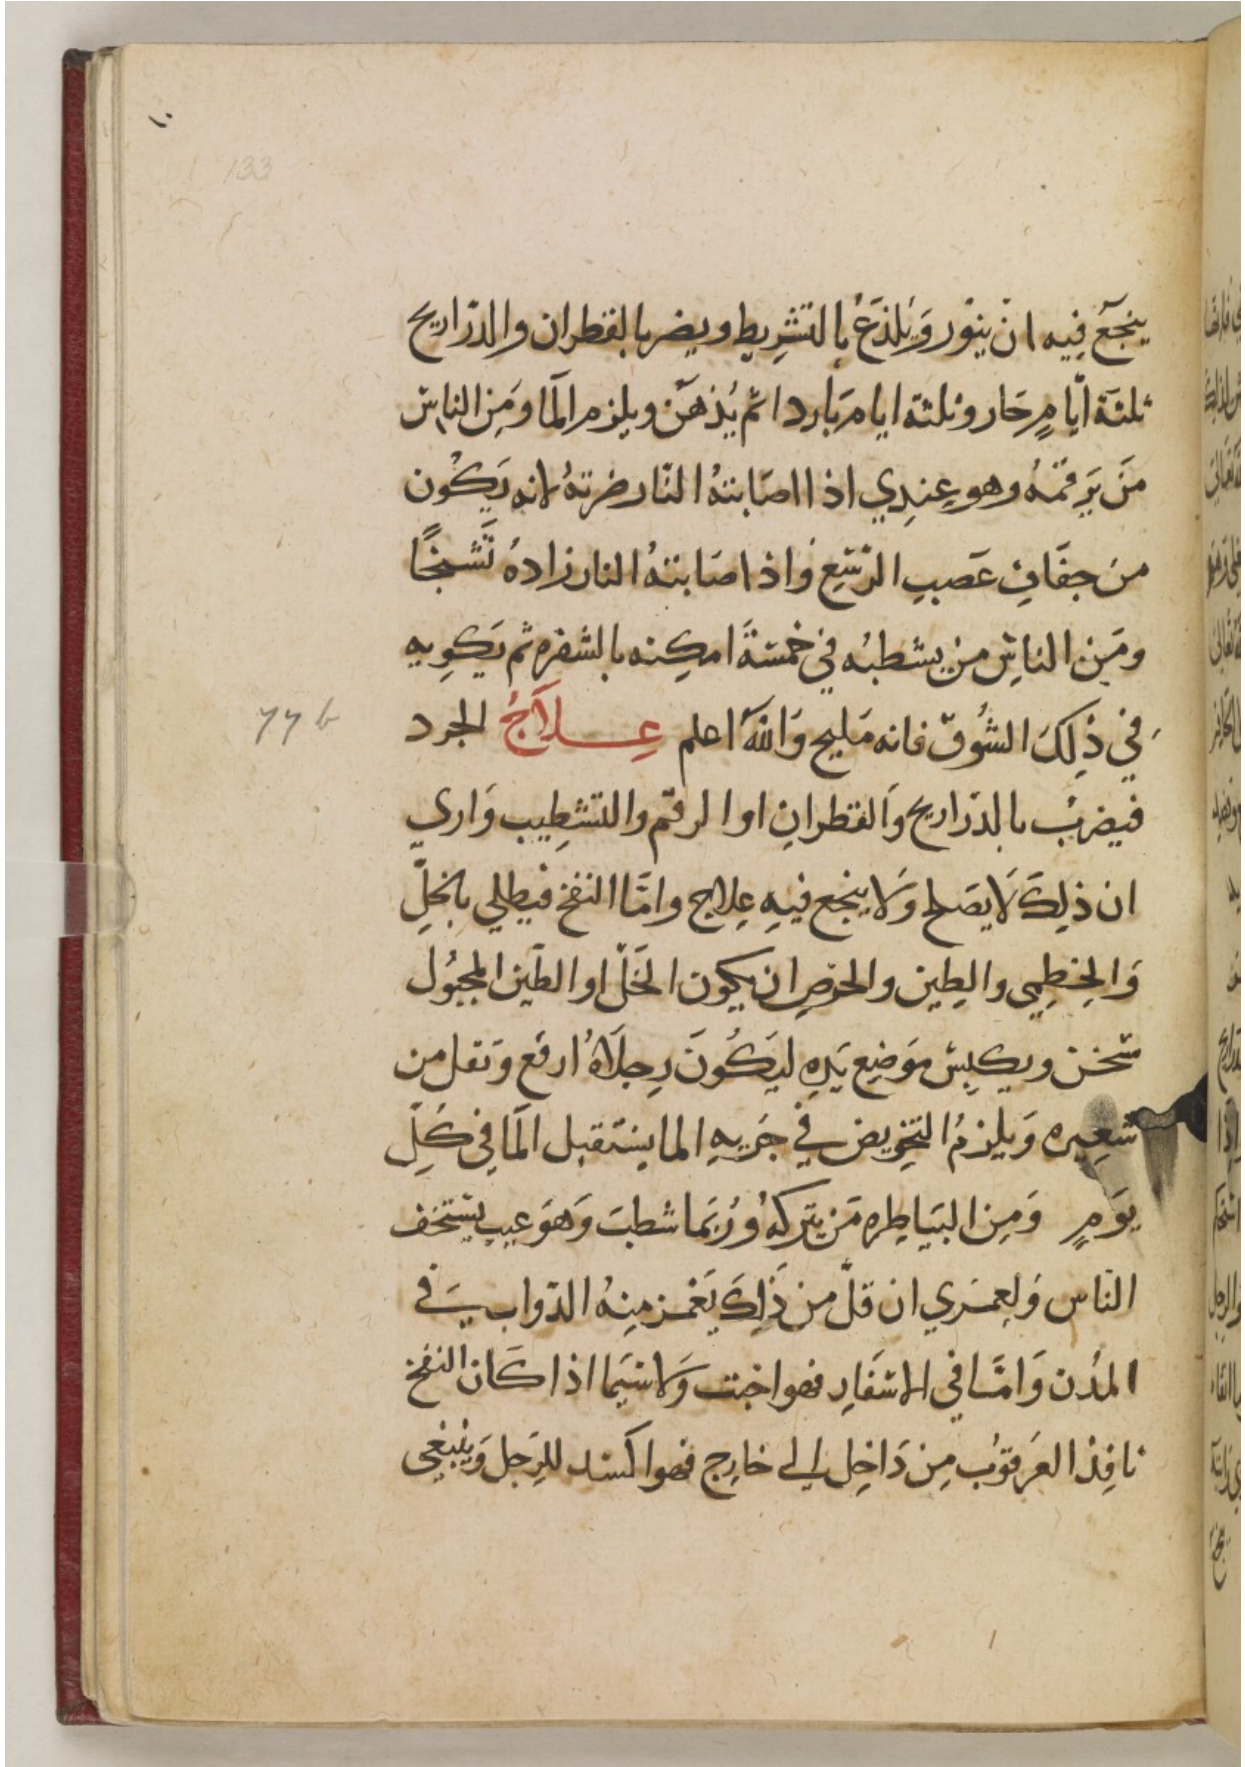 ١٠
133
ينجع فيه ان ينور ويلذع بالتشريط ويضر بالقطران والذراريح
ثلثة ايامٍ حار وثلثة ايام بارد اثم يدهن ويلزم الما ومن الناس
من يرقمه وهو عندي اذا اصابته النار ضرته لانه يكون
من جفاف عصب الرسغ واذا صابته النار زاده تشنجًا
ومن الناس من يشطبه في خمسة امكنه بالشفره ثم يكويه
في ذلك الشوق فانه مليح والله اعلم علاج الجرد
77 b
فيضرب بالذراريح والقطران او الرقم والتشطيب واري
ان ذلك لا يصلح ولا ينجع فيه علاج واما النفخ فيطلي بالخلّ
والخطمي والطين والحرص ان يكون الخلّ او الطين المجبول
سخن ويكبس موضع يده ليكون رجلاه ارفع وتقل من
شعيره ويلزم التخويض في جريه الما يستقبل الما في كلّ
يومٍ ومن البياطره من يتركه وربما شطب وهو عيب يستخف
الناس ولعمري ان قلّ من ذلك يغمز منه الدواب في
المدن واما في الاسفار فهو اخبث ولا سيما اذا كان النفخ
نافذ العرقوب من داخل الي خارج فهو اكسد للرجل وينبغي